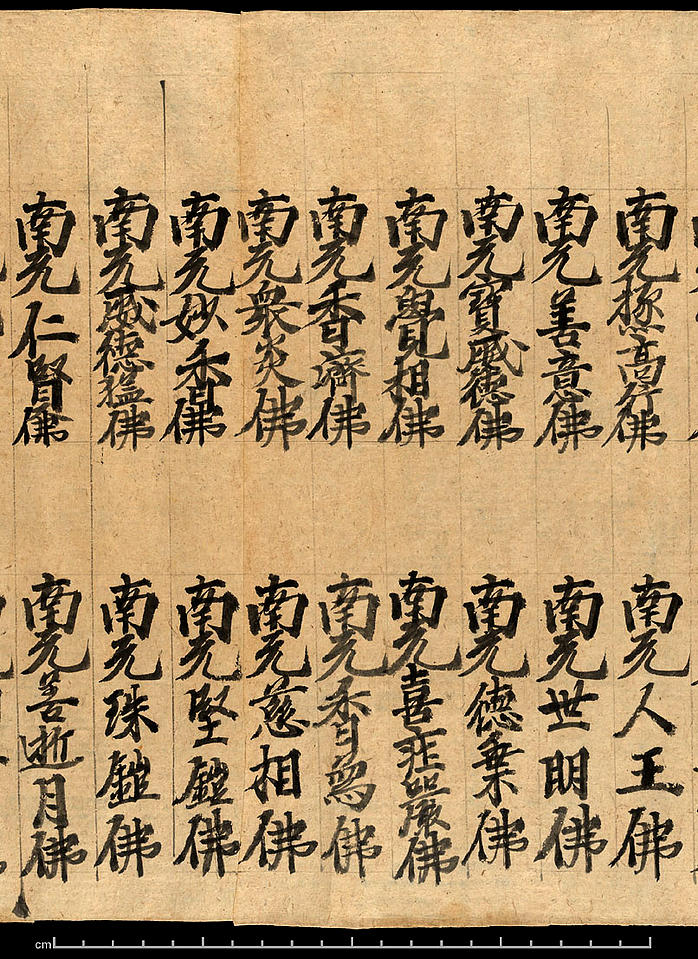 南无極高行佛
南无人王佛
南无善意佛
南无世明佛
南无寶威德佛
南无德乗佛
南无覺相佛
南无喜莊嚴佛
南无香濟佛
南无香象佛
南无衆炎佛
南无慈相佛
南无妙香佛
南无堅鎧佛
南无威德猛佛
南无珠鎧佛
南无仁賢佛
南无善逝月佛
cm